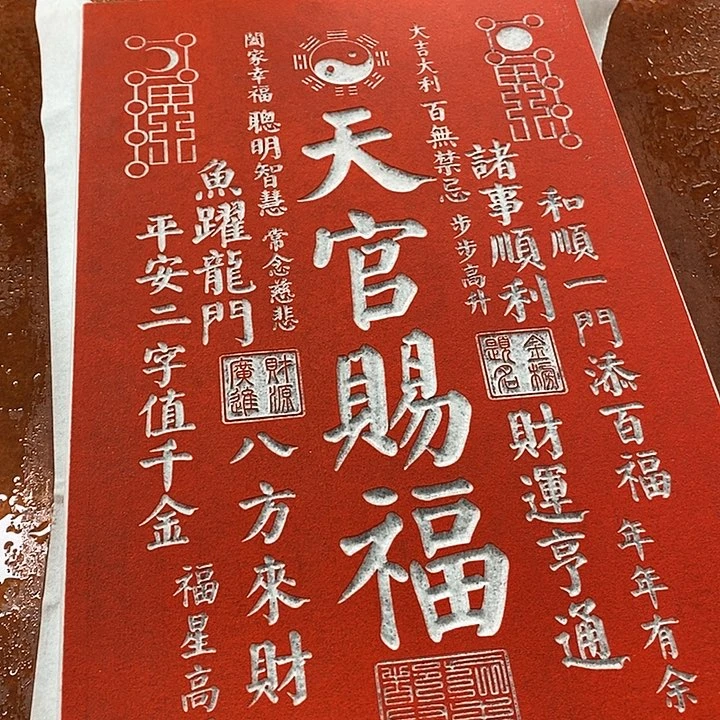 和順一門添百福 年年有余
諸事順利
金榜題名
財運亨通
大吉大利 百無禁忌 步步高升
天官賜福
闔家幸福 聰明智慧 常念慈悲
魚躍龍門
財源廣進
八方來財
平安二字值千金
福星高